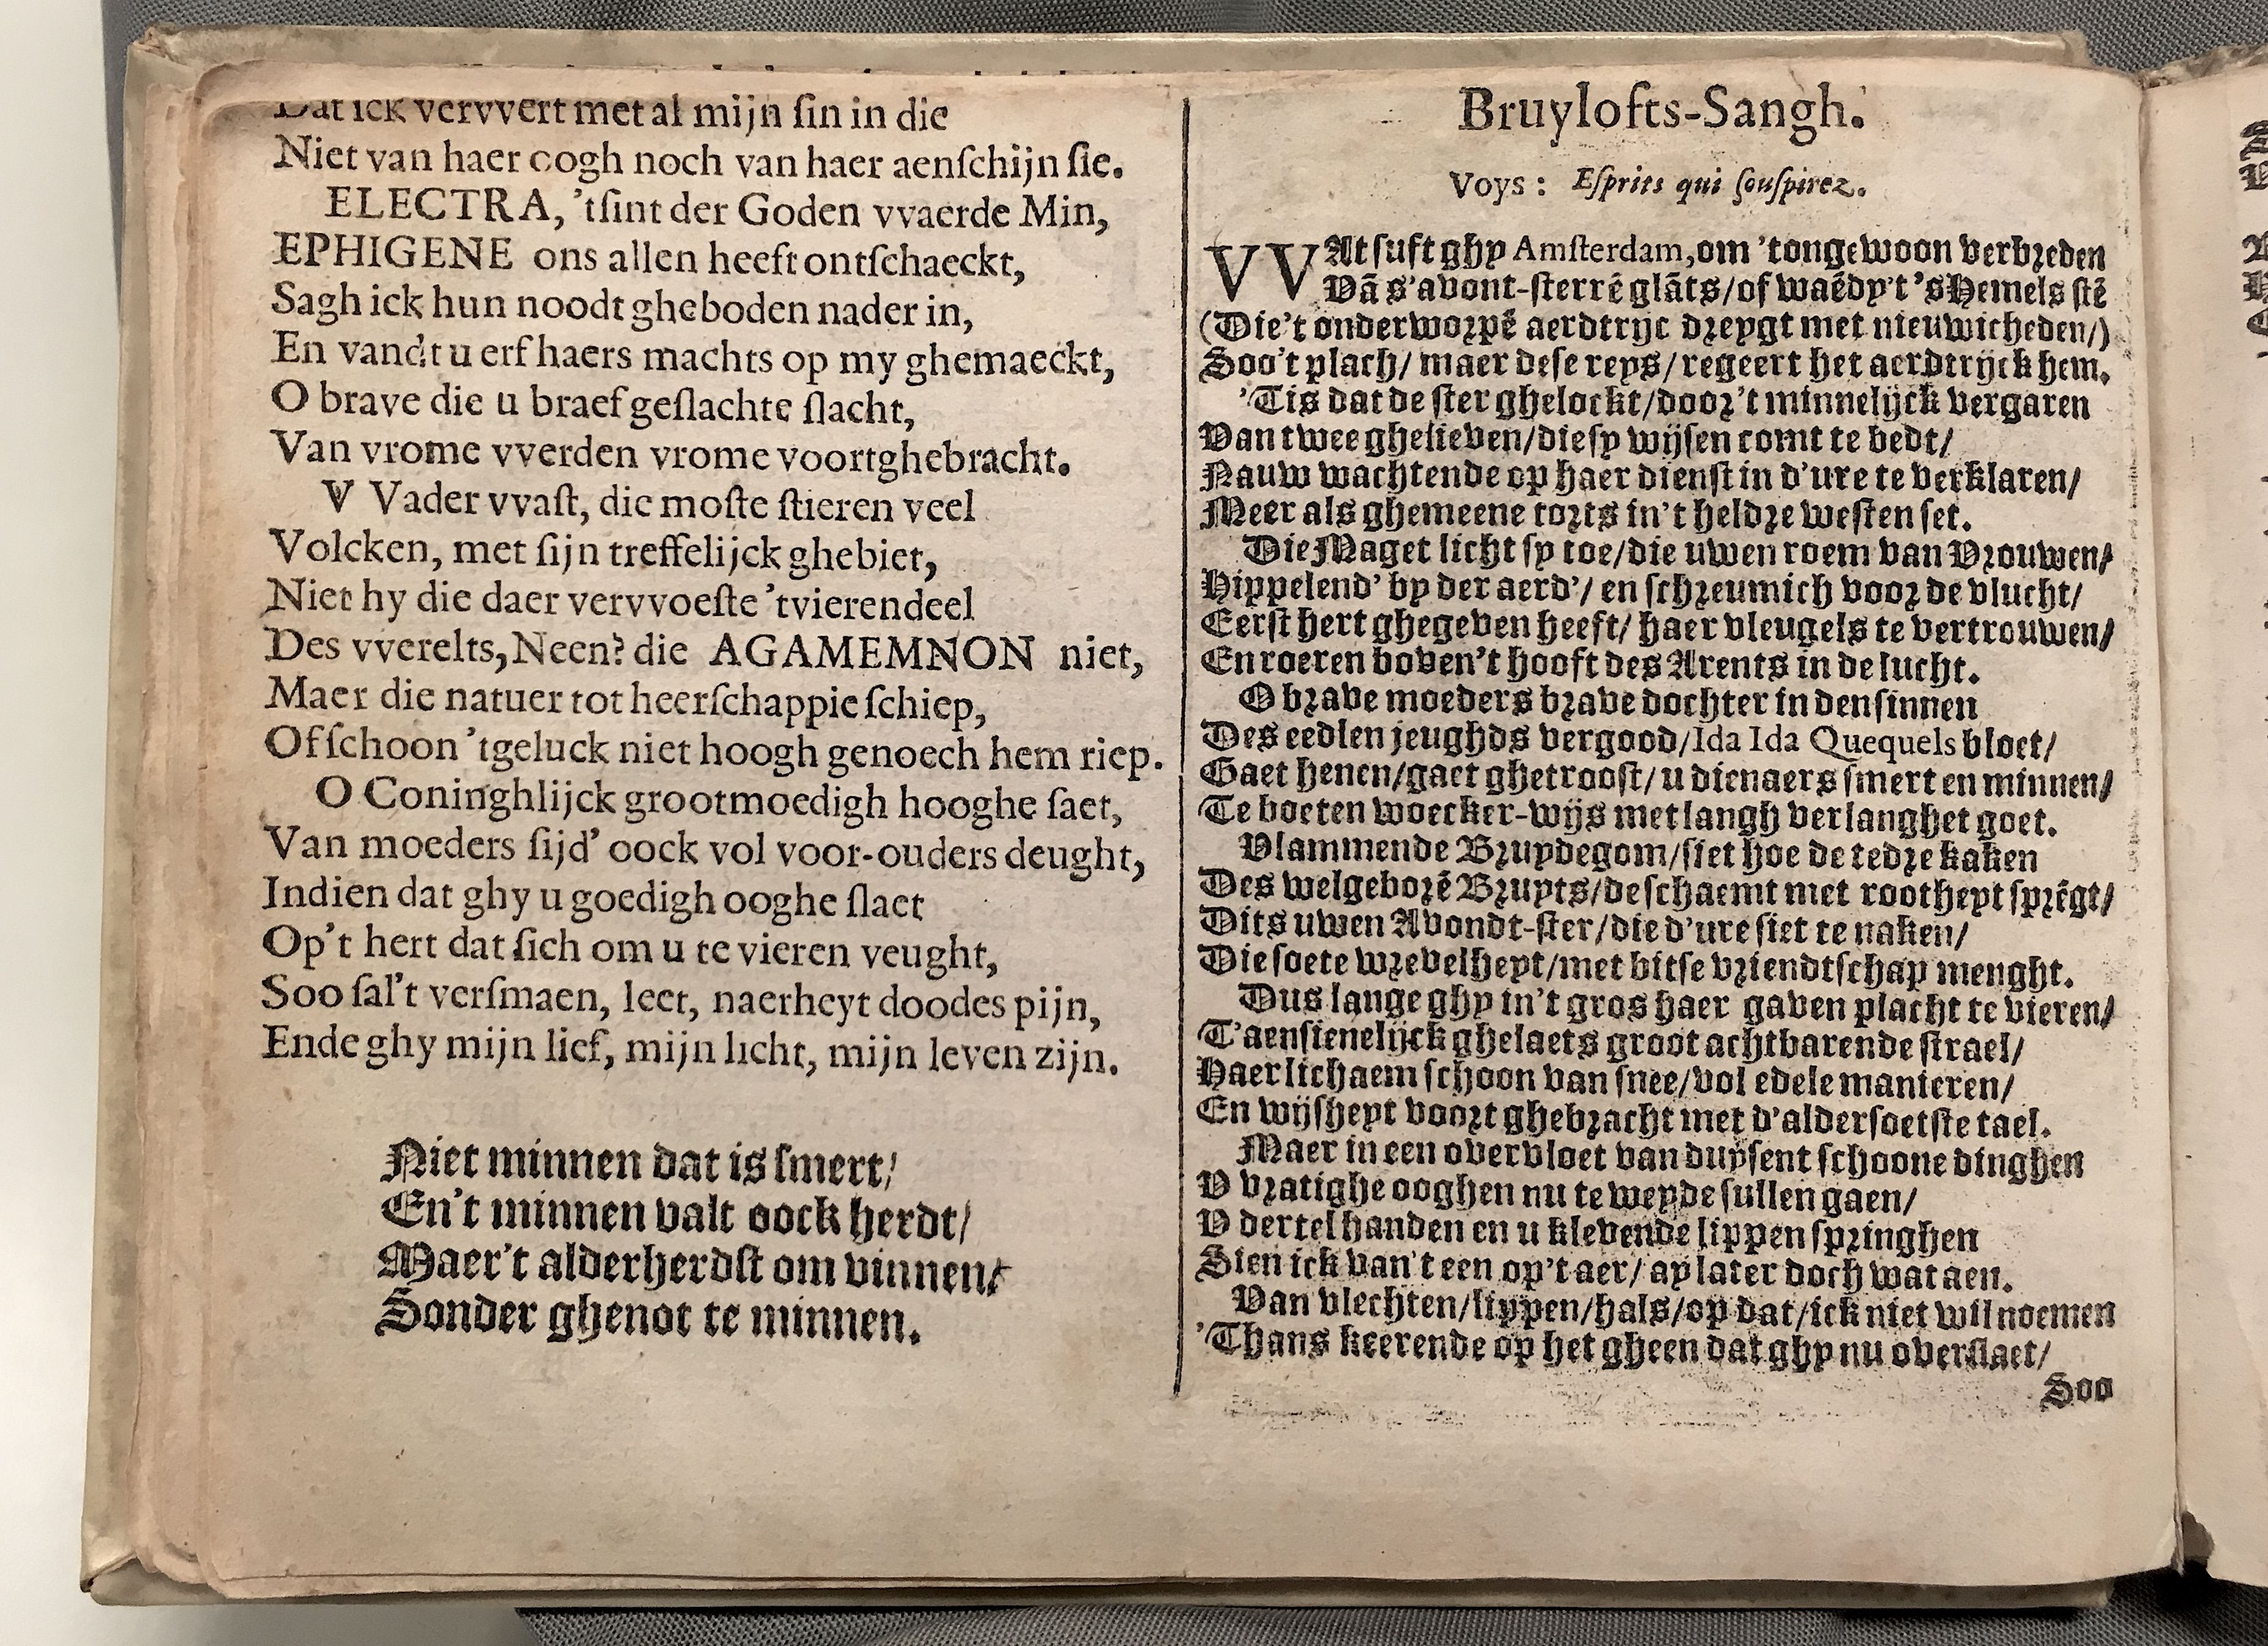 Dat ick vervvert met al mijn ſin in die
Niet van haer oogh noch van haer aenſchijn ſie.
ELECTRA, 'tſint der Goden vvaerde Min,
EPHIGENE ons allen heeft ontſchaeckt,
Sagh ick hun noodt gheboden nader in,
En vandt u erf haers machts op my ghemaeckt,
O brave die u braef geſlachte ſlacht,
Van vrome vverden vrome voortghebracht.
V Vader vvaſt, die moſte ſtieren veel
Volcken, met ſijn treffelijck ghebiet,
Niet hy die daer vervvoeſte 'tvierendeel
Des vverelts, Neen? die AGAMEMNON niet,
Maer die natuer tot heerſchappie ſchiep,
Of ſchoon 'tgeluck niet hoogh genoech hem riep.
O Coninghlijck grootmoedigh hooghe ſaet,
Van moeders ſijd' oock vol voor-ouders deught,
Indien dat ghy u goedigh ooghe ſlaet
Op't hert dat ſich om u te vieren veught,
Soo ſal't verſmaen, leet, naerheyt doodes pijn,
Ende ghy mijn lief, mijn licht, mijn leven zijn.
Niet minnen dat is ſmert/
En't minnen valt oock herdt/
Maer't alderherdſt om vinnen/
Sonder ghenot te minnen.
Bruylofts-Sangh.
Voys: Eſprits qui ſouſpirez.
VVAt ſuft ghy Amſterdam, om 'tongewoon verbreden
Vā s'avont-ſterrē glāts/of waēdy't 'sHemels ſtē
(Die't onderworpē aerdtrijc dreygt met nieuwicheden/)
Soo't plach/ maer deſe reys/ regeert het aerdtrijck hem.
'Tis dat de ſter ghelockt/door't minnelijck vergaren
Van twee ghelieven/die ſy wijſen comt te bedt/
Nauw wachtende op haer dienſt in d'ure te verklaren/
Meer als ghemeene torts in't heldre weſten ſet.
Die Maget licht ſy toe/die uwen roem van Vrouwen/
Hippelend' by der aerd'/ en ſchreumich voor de vlucht/
Eerſt hert ghegeven heeft/ haer vleugels te vertrouwen/
En roeren boven't hooft des Arents in de lucht.
O brave moeders brave dochter in den ſinnen
Des eedlen jeughds vergood/Ida Ida Quequels bloet/
Gaet henen/gaet ghetrooſt/ u dienaers ſmert en minnen/
Te boeten woecker-wijs met langh verlanghet goet.
Vlammende Bruydegom/ſiet hoe de tedre kaken
Des welgeborē Bruyts/de ſchaemt met rootheyt ſprēgt/
Dits uwen Avondt-ſter/die d'ure ſiet te naken/
Die ſoete wrevelheyt/met bitſe vriendtſchap menght.
Dus lange ghy in't gros haer gaven placht te vieren/
T'aenſienelijck ghelaets groot achtbarende ſtrael/
Haer lichaem ſchoon van ſnee/vol edele manieren/
En wijſheyt voort ghebracht met d'alderſoetſte tael.
Maer in een overvloet van duyſent ſchoone dinghen
V vratighe ooghen nu te weyde ſullen gaen/
V dertel handen en u klevende lippen ſpringhen
Sien ick van't een op't aer/ ay later doch wat aen.
Van vlechten/lippen/hals/op dat/ick niet wil noemen
'Thans keerende op het gheen dat ghy nu overſlaet/
Soo